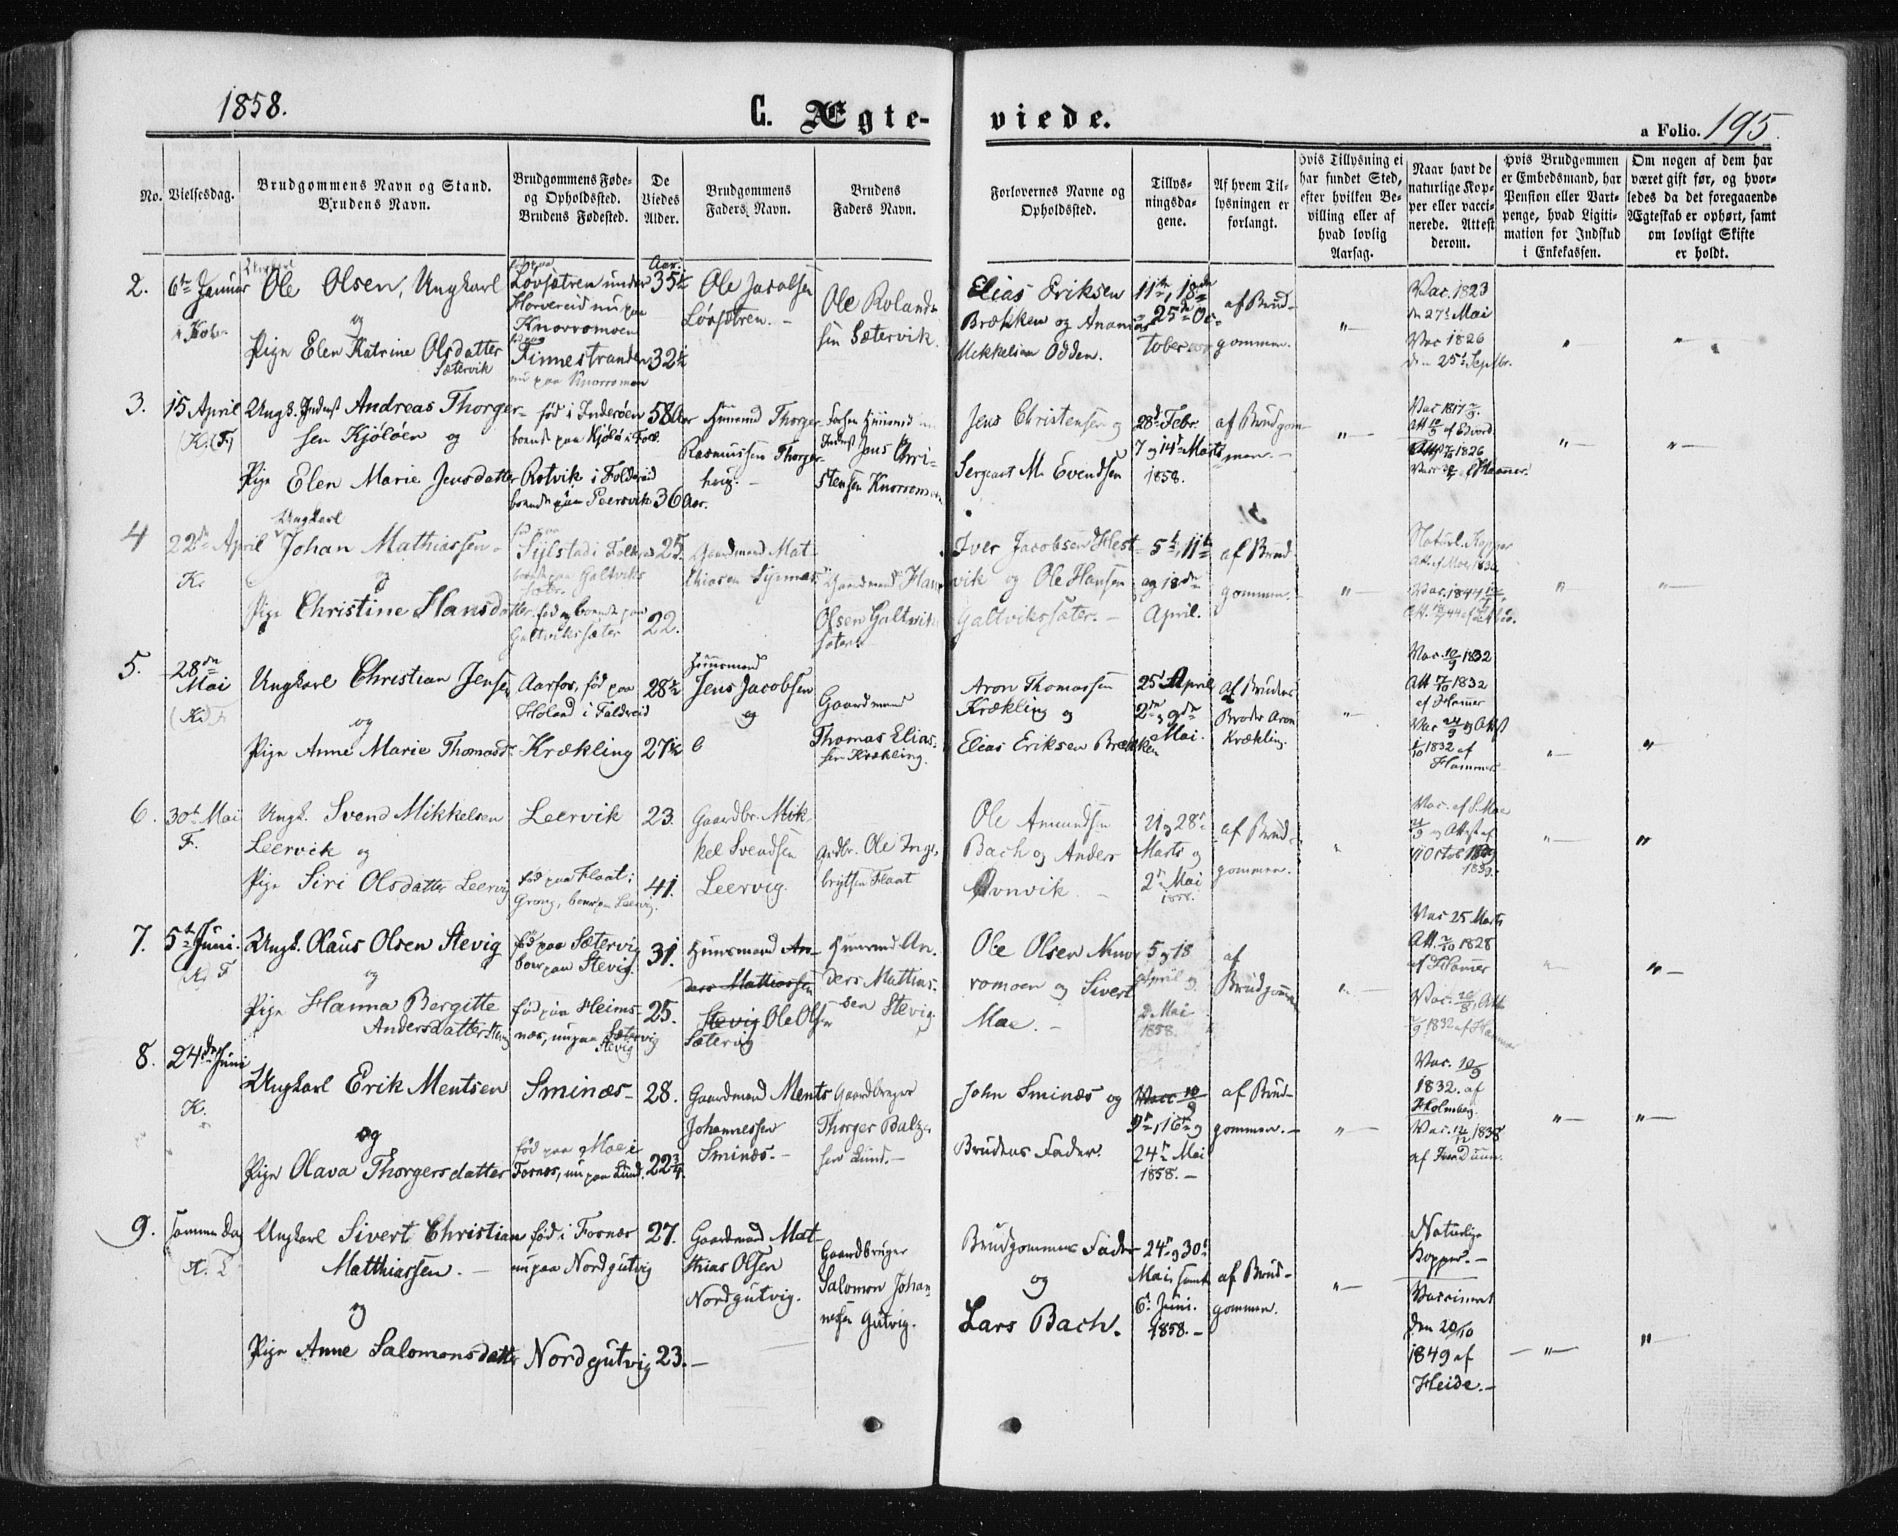 1858.
C. Ægte-
viede.
a Folio. 195.
No.
Vielsesdag.
Brudgommens Navn og Stand.
Brudens Navn.
Brudgommens Føde-
og Opholdssted.
Brudens Fødested.
De
Viedes
Alder.
Brudgommens
Faders Navn.
Brudens
Faders Navn.
Forlovernes Navne og
Opholdssted.
Tillys-
ningsda-
gene.
Af hvem Til-
lysningen er
forlangt.
Hvis Tillysning ei
har fundet Sted,
efter hvilken Be-
villing eller af
hvad lovlig
Aarsag.
Naar havt de
naturlige Kop-
per eller vacci-
nerede. Attest
derom.
Hvis Brudgommen
er Embedsmand, har
Pension eller Vart-
penge, hvad Ligiti-
mation for Indskud
i Enkekassen.
Om nogen af dem har
været gift før, og hvor-
ledes da det foregaaende
Ægteskab er ophørt, samt
om lovligt Skifte
er holdt.
2.
6te Januar
Ole Olsen, Ungkarl
og
Pige Elen Katrine Olsdatter
Sætervik
Løvsætren under
Horvereid nu paa
Knorromoen
Finnestranden
nu paa Knorromoen
Aar.
35½
32½
Ole Jacobsen
Løvsætren.
Ole Roland-
sen Sætervik.
Elias Eriksen
Brækken og
Mikkelsen Odden.
11te, 18de
25de Oc-
tober
af Brud-
gommen.
"
Vac. 1823
den 27de Mai
Vac 1826
den 25de Septbr.
"
"
3.
15 April
(K. F.)
Ungk. Andreas Thorger-
sen Kjöløen og
Pige Elen Marie Jensdatter
fød i Inderøen
boende paa Kjölø i Fold.
Rotvik i Foldereid
boende paa Peersvik
58 Aar
36 Aar.
Huusmand Thorger
Rasmussen Thorger-
Jens Chri-
stensen Knorromoen
Jens Christensen og
Sergeant M. Evendsen
28de Febr.
7 og 14de Marts
1858.
af Brudgom-
men.
"
Vac 1817
1826
"
"
4
22de April
K.
Ungkarl
Johan Mathiassen
og
Pige Christine Hansdatter
boende paa Galtviks
fød og boende paa
Galtvikssæter
25.
22.
Gaardmand Mat-
thiasen
Gaardmand Hans
Olsen Galtvik
Iver Jacobsen Hest-
vik og Ole Hansen
Galtvikssæter.
5te, 11te
og 18de
April.
af Brud-
gommen.
"
Naturl. Kopper
Vac. 1844
"
"
5.
28de
Mai
Ungkarl Christian Jensen
og
Pige Anne Marie Thomasd.
Aarfor, fød paa
Höland i Foldreid
Krækling
28½
27½
Huusmand
Jens Jacobsen
Gaardmand
Thomas Elias-
sen Krækling.
Aron Thomassen
Krækling og
Elias Eriksen Brækken
25de April
2den, 9de
Mai.
af Brudens
Broder Aron
Krækling.
"
Vac. 10/9 1832
Att 7/10 1832
af Hamer
Vac 24/9 og Attest
1/10 1832 af
Hammer
"
"
6.
30te Mai
F.
Ungk. Svend Mikkelsen
Leervik og
Pige Siri Olsdatter Leervig
Leervik
fød paa Flaat i
Grong, boer paa Leervig.
23.
41.
Gaardbr. Mik-
kel Svendsen
Leervig.
Ole Inge-
brigtsen Flaat
Ole Amundsen
Bach og Anders
Avnvik.
21 og 28de
Marts og
2de Mai
1858.
af Brud-
gommen.
"
Vac. af S. Moe
11 October
1839.
"
"
7.
5te Juni.
K. F
Ungk. Claus Olsen Stevig
og
Pige Hanna Bergitte
Andersdatter Stevig
fød paa Sætervig
boer paa Stevig.
fød paa Heims-
næs, nu paa Sætervig
Stevig
31.
25.
Huusmand An-
ders Mathiassen
Stevig Ole Olsen
Sætervig
Huusmand An-
ders Mathias-
sen Stevig
Ole Olsen Knor-
romoen og Sivert
Moe.
5 og 18
April og
2 Mai
1858.
af
Brudgommen
"
Vac 25 Marts
Att. 2/10 1828
af Hamer
Vac. Att.
1832 af Hammer
"
"
8.
24de Juni
K.
Ungkarl Erik Mentsen
og
Pige Olava Thorgersdatter
Sminæs
fød paa Moe i
Fornes, nu paa Lund.
28.
22¾.
Gaardmand Ments
Johannessen
Sminæs.
Gaardbruger
Thorger Balza-
sen Lund.
John Sminæs og
Brudens Fader.
Vacc 10/9
9de, 16de og
24de Mai
1858.
af Brud-
gommen.
"
Vac. 10/9
1832. af
Holmberg.
Vac. 12/12 1838
af Iver Duun.
"
"
9.
samme Dag
Ungkarl Sivert Christian
Matthiassen.
og
Pige Anne Salomonsdatter
fød i Fornæs
nu paa Nordgutvig
Nordgutvig
27.
23.
Gaardmand Mat-
thias Olsen
Nordgutvig.
Gaardbruger
Salomon Johan-
nesen Gutvig.
Brudgommens Fader
og
Lars Bach.
24de og 30te
Mai, samt
6te Juni.
1858.
af Brud-
gommen.
"
Naturlige
Kopper.
Vaccineret
den 20/10
1849 af
Heide.
"
"